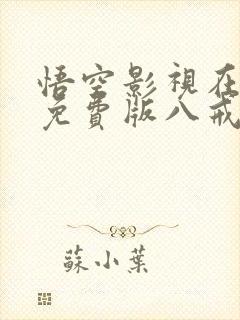 悟空影視在
免費版八戒
蘇小葉